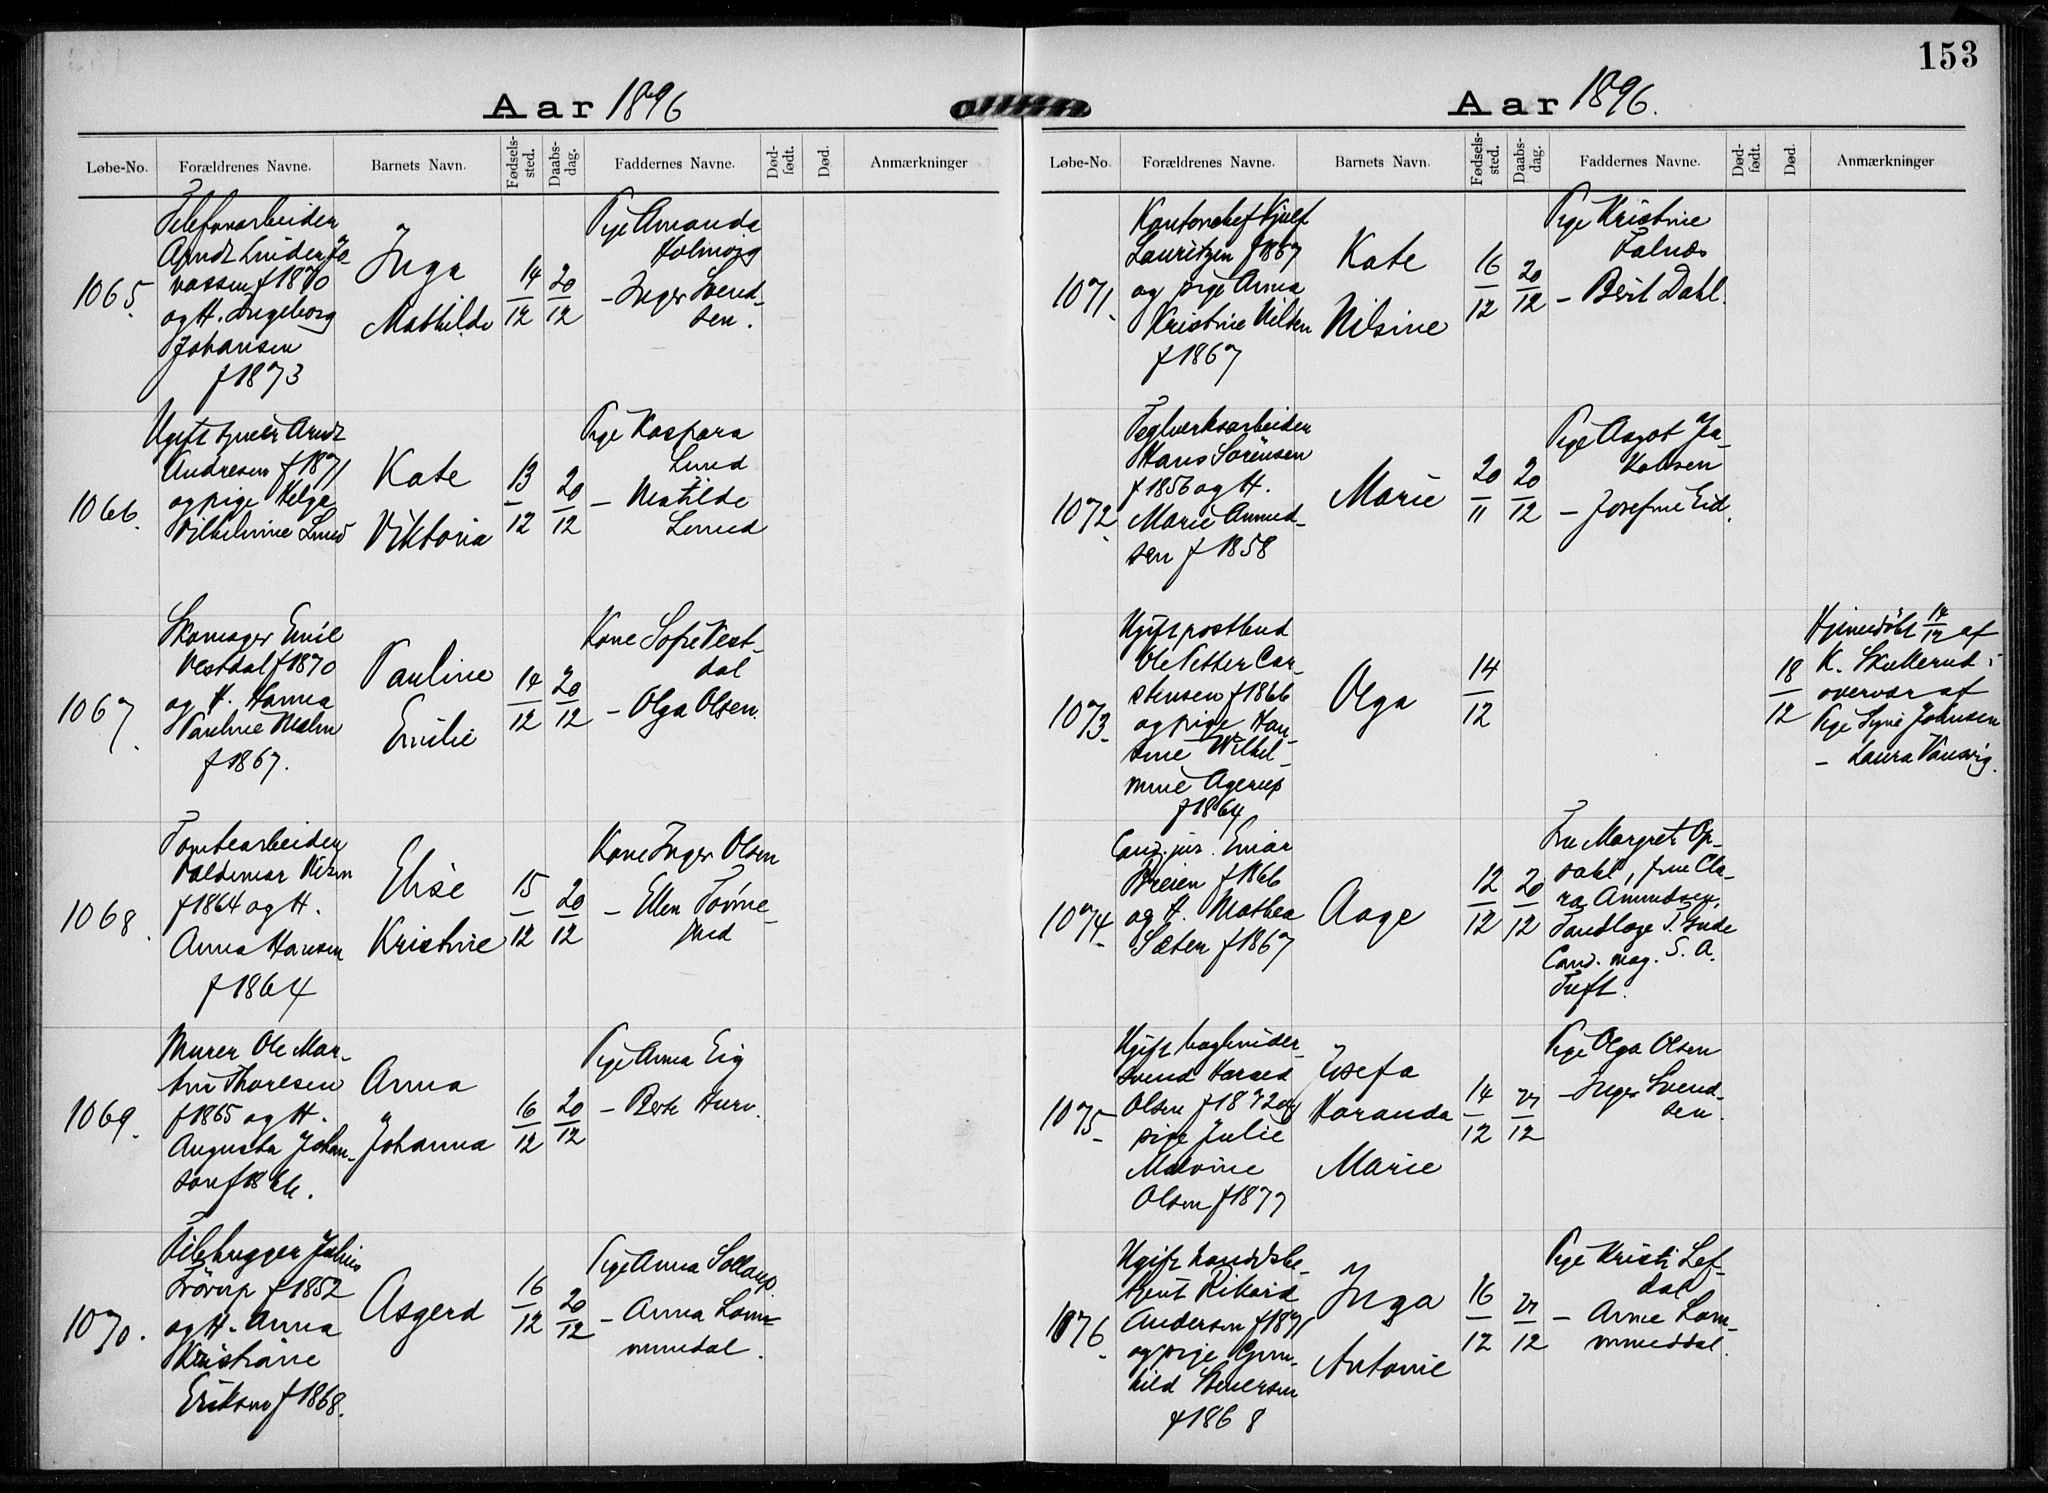 153
Aar 1896
Løbe-No. Forældrenes Navne. Barnets Navn. Fødselssted. Daabsdag. Faddernes Navne. Dødfødt. Død. Anmærkninger
1065.
Telefonarbeider
Arndt Linder Jo-
nassen f 1870
og H. Ingeborg
Johansen
f 1873
Inga
Mathilde
14/12
20/12
Pige Amanda
Holmvig
– Inger Svend-
sen.
1066.
Ugift Arndt
Andresen f 1871
og pige Helga
Vilhelmine Lund
Kate
Viktoria
13/12
20/12
Pige Kaspara
Lund
– Matilde
Lund
1067.
Skomager Emil
Vestdal f 1870
og H. Hanna
Pauline Malm
f 1867.
Pauline
Emilie
14/12
20/12
Kone Sofie Vest-
dal
– Olga Olsen.
1068.
Tomtearbeider
Valdemar Olsen
f 1864 og H.
Anna Hansen
f 1864
Elise
Kristine
15/12
20/12
Kone Inger Olsen
– Ellen
1069.
Murer Ole Mar-
tin Thoresen
f 1865 og H.
Augusta Johan-
son f 1866.
Anna
Johanna
16/12
20/12
Pige Anna Eig
– Berte
1070.
Filehugger Julius
Trörup f 1852
og H. Anna
Kristiane
Eriksen f 1868.
Asgerd
16/12
20/12
Pige Anna Sollaug
– Anna Lom-
mmedal.
Aar 1896.
Løbe-No. Forældrenes Navne. Barnets Navn. Fødselssted. Daabsdag. Faddernes Navne. Dødfødt. Død. Anmærkninger
1071.
Kontorchef Kjell
Lauritzen f 1867
og pige Anna
Kristine Nilsen
f 1867
Kate
Nilsine
16/12
20/12
Pige Kristine
Falnæs
– Berit Dahl.
1072.
Teglverksarbeider
Hans Sörensen
f 1856 og H.
Marie Amund-
sen f 1858
Marie
20/11
20/12
Pige Aagot Ja-
kobsen
– Josefine Eid.
1073.
Ugift postbud
Ole Petter Car-
stensen f 1866
og pige Han-
sine Wilhel-
mine Agerup
f 1864
Olga
14/12
18/12
Hjemmedöbt 14/12 af
K. Skullerud i
overvær af
Pige Signe Johnsen
– Laura Vansvig.
1074.
Cand. jur. Einar
Breien f 1866
og H. Mathea
Sæter f 1867
Aage
12/12
20/12
Fru Margret Op-
sahl, frue Cla-
ra Amundsen,
Tandlæge T. Gude
Cand. mag. S. A.
Tuft.
1075.
Ugift bogbinder-
svend Harald
Olsen f 1872 og
pige Julie
Malvine
Olsen f 1877
Josefa
Haranda
Marie
14/12
21/12
Pige Olga Olsen
– Inger Svend-
sen.
1076.
Ugift handelsbe-
tjent Rikard
Andersen f 1871
og pige Gun-
hild Steversen
f 1868
Inga
Antonie
16/12
21/12
Pige Kristi Lef-
dal
– Arne Lom-
mmeddal.